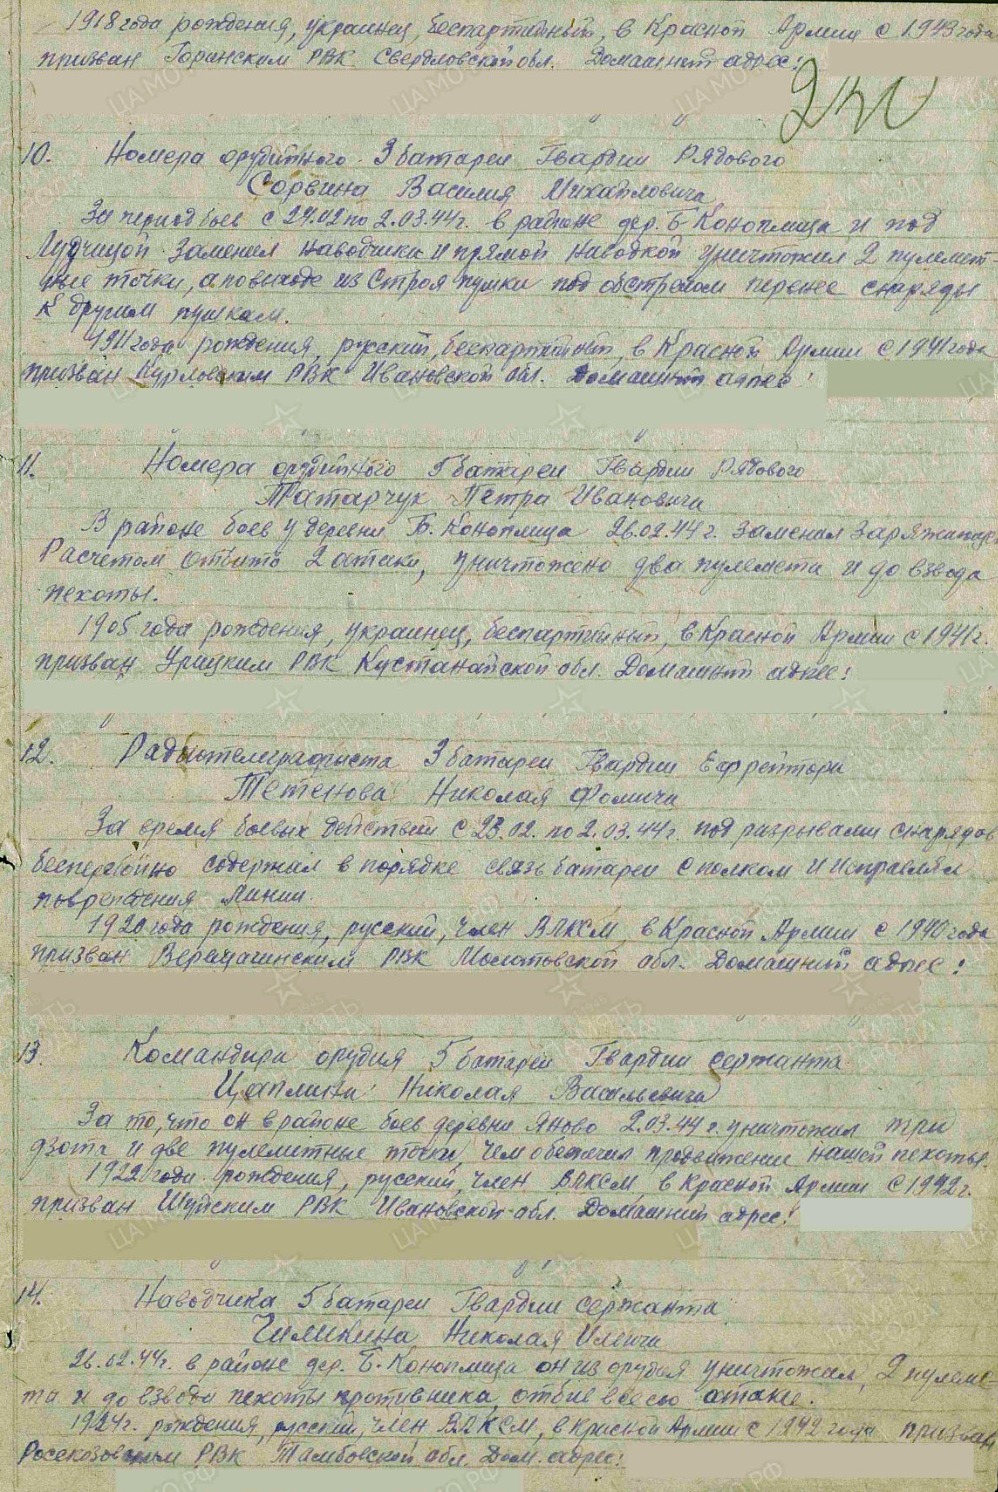 1918 года рождения, украинец, беспартийный, в Красной Армии с 1943 года
призван Горинским РВК Свердловской обл. Домашний адрес:
240
10. Номера орудийного 3 батареи Гвардии Рядового
Сорвина Василия Михайловича
За период боев с 24.02 по 2.03.44г. в районе дер. Б Коноплица и под
заменил наводчика и прямой наводкой уничтожил 2 пулемет-
ные точки, а по выходе из строя пушки под обстрелом перенес снаряды
к другим пушкам.
1911 года рождения, русский, беспартийный, в Красной Армии с 1941 года
призван Курловским РВК Ивановской обл. Домашний адрес:
11. Номера орудийного 5 батареи Гвардии Рядового
Татарчук Петра Ивановича
В районе боев у деревни Б. Коноплица 26.02.44г. заменил заряжающего
Расчетом отбито 2 атаки, уничтожено два пулемета и до взвода
пехоты.
1905 года рождения, украинец, беспартийный, в Красной Армии с 1941г.
призван Урицким РВК Кустанайской обл. Домашний адрес:
12. Радиотелеграфиста 3 батареи Гвардии Ефрейтора
Тетенова Николая Фомича
За время боевых действий с 23.02. по 2.03.44г. под разрывами снарядов
бесперебойно содержал в порядке связь батареи с полком и исправлял
повреждения линии.
1920 года рождения, русский, член ВЛКСМ, в Красной Армии с 1940 года
призван Верещагинским РВК Молотовской обл. Домашний адрес:
13. Командира орудия 5 батареи Гвардии сержанта
Цаплина Николая Васильевича
За то, что он в районе боев деревни Яново 2.03.44г. уничтожил три
дзота и две пулеметные точки, чем обеспечил продвижение нашей пехоты.
1922 года рождения, русский, член ВЛКСМ в Красной Армии с 1942г.
призван Шуйским РВК Ивановской обл. Домашний адрес:
14. Наводчика 5 батареи Гвардии сержанта
Чиликина Николая Ильича
26.02.44г. в районе дер. Б. Коноплица он из орудия уничтожил, 2 пулеме-
та и до взвода пехоты противника, отбив всею атаке.
1924г. рождения, русский, член ВЛКСМ, в Красной Армии с 1942 года призван
Рассказовским РВК Тамбовской обл. Дом. адрес: